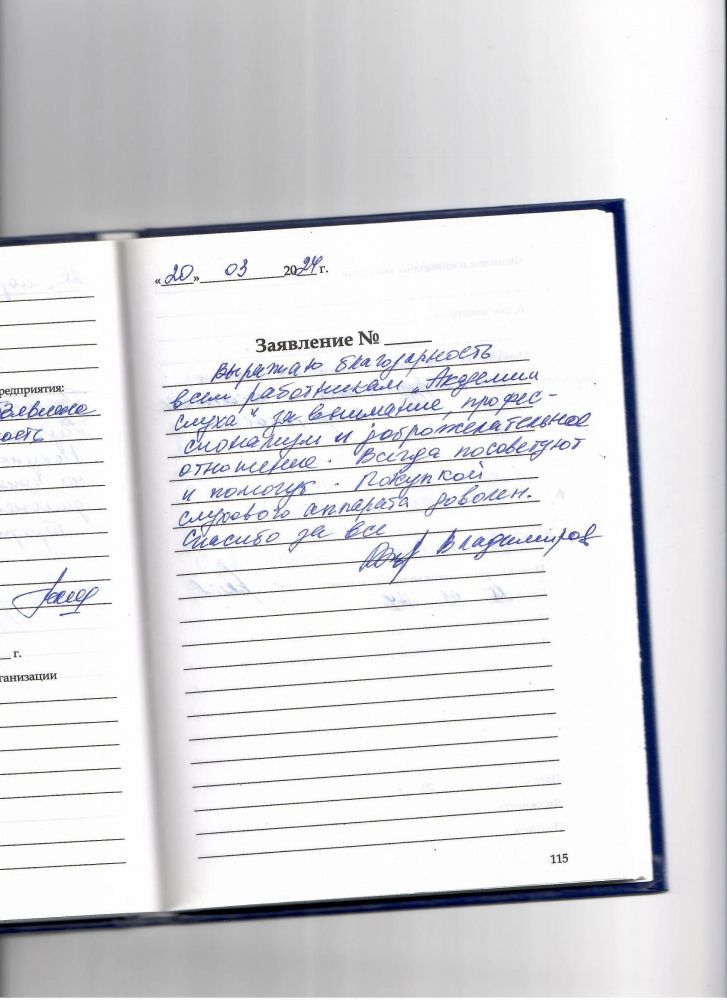 «20» 03 2024 г.
Заявление №
Выражаю благодарность
всем работникам „Академии
слуха" за внимание, профес-
сионализм и доброжелательное
отношение. Всегда посоветуют
и помогут. Покупкой
слухового аппарата доволен.
Спасибо за все
Владимиров
115
редприятия:
ость
г.
ганизации